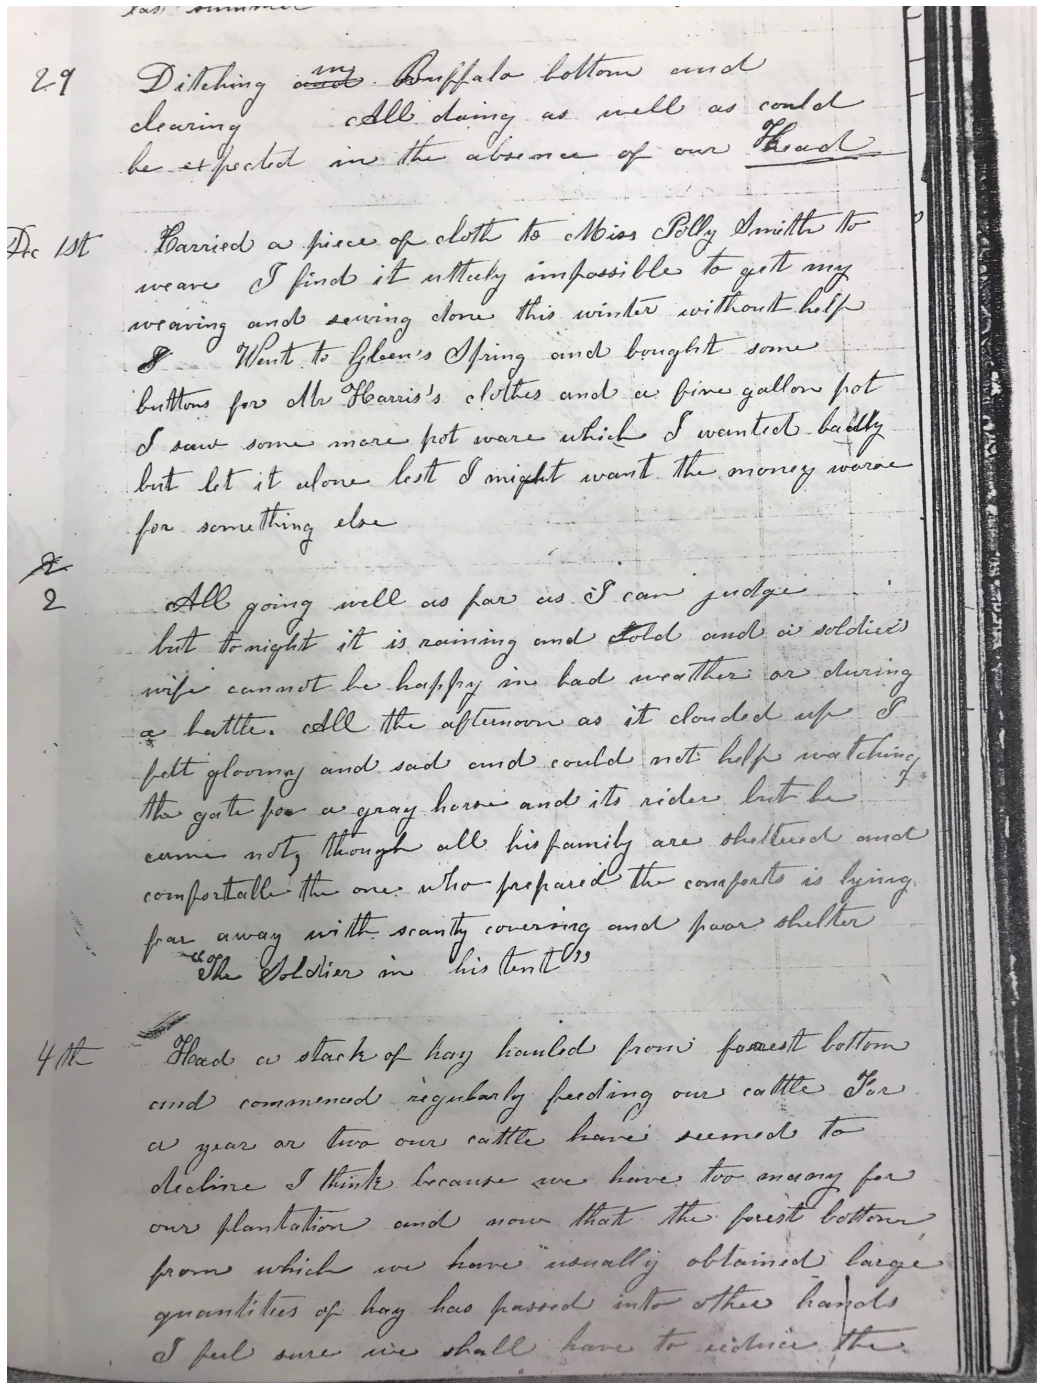 last summer
29 Ditching and in Buffalo bottom and
clearing All doing as well as could
be expected in the absence of our Head
Dec 1st Carried a piece of cloth to Miss Polly Smith to
weave I find it utterly impossible to get my
weaving and sewing done this winter without help
Went to Glenn's Spring and bought some
buttons for Mr Harris's clothes and a five gallon pot
I saw some more pot ware which I wanted badly
but let it alone lest I might want the money worse
for something else
2
2 All going well as far as I can judge
but tonight it is raining and cold and a soldier's
wife cannot be happy in bad weather or during
a battle. All the afternoon as it clouded up I
felt gloomy and sad and could not help watching
the gate for a gray horse and its rider but he
came not, though all his family are sheltered and
comfortable the one who prepared the comforts is lying
far away with scanty covering and poor shelter
"The Soldier in his tent"
4th Had a stack of hay hauled from forest bottom
and commenced regularly feeding our cattle For
a year or two our cattle have seemed to
decline I think because we have too many for
our plantation and now that the forest bottom
from which we have usually obtained large
quantities of hay has passed into other hands
I feel sure we shall have to reduce the